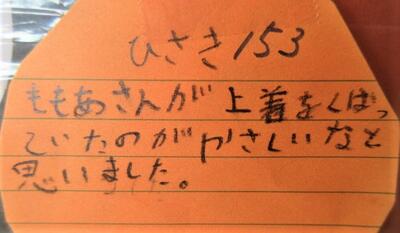 ひさき153
ももあさんが上着をくばっ
ていたのがやさしいなと
思いました。